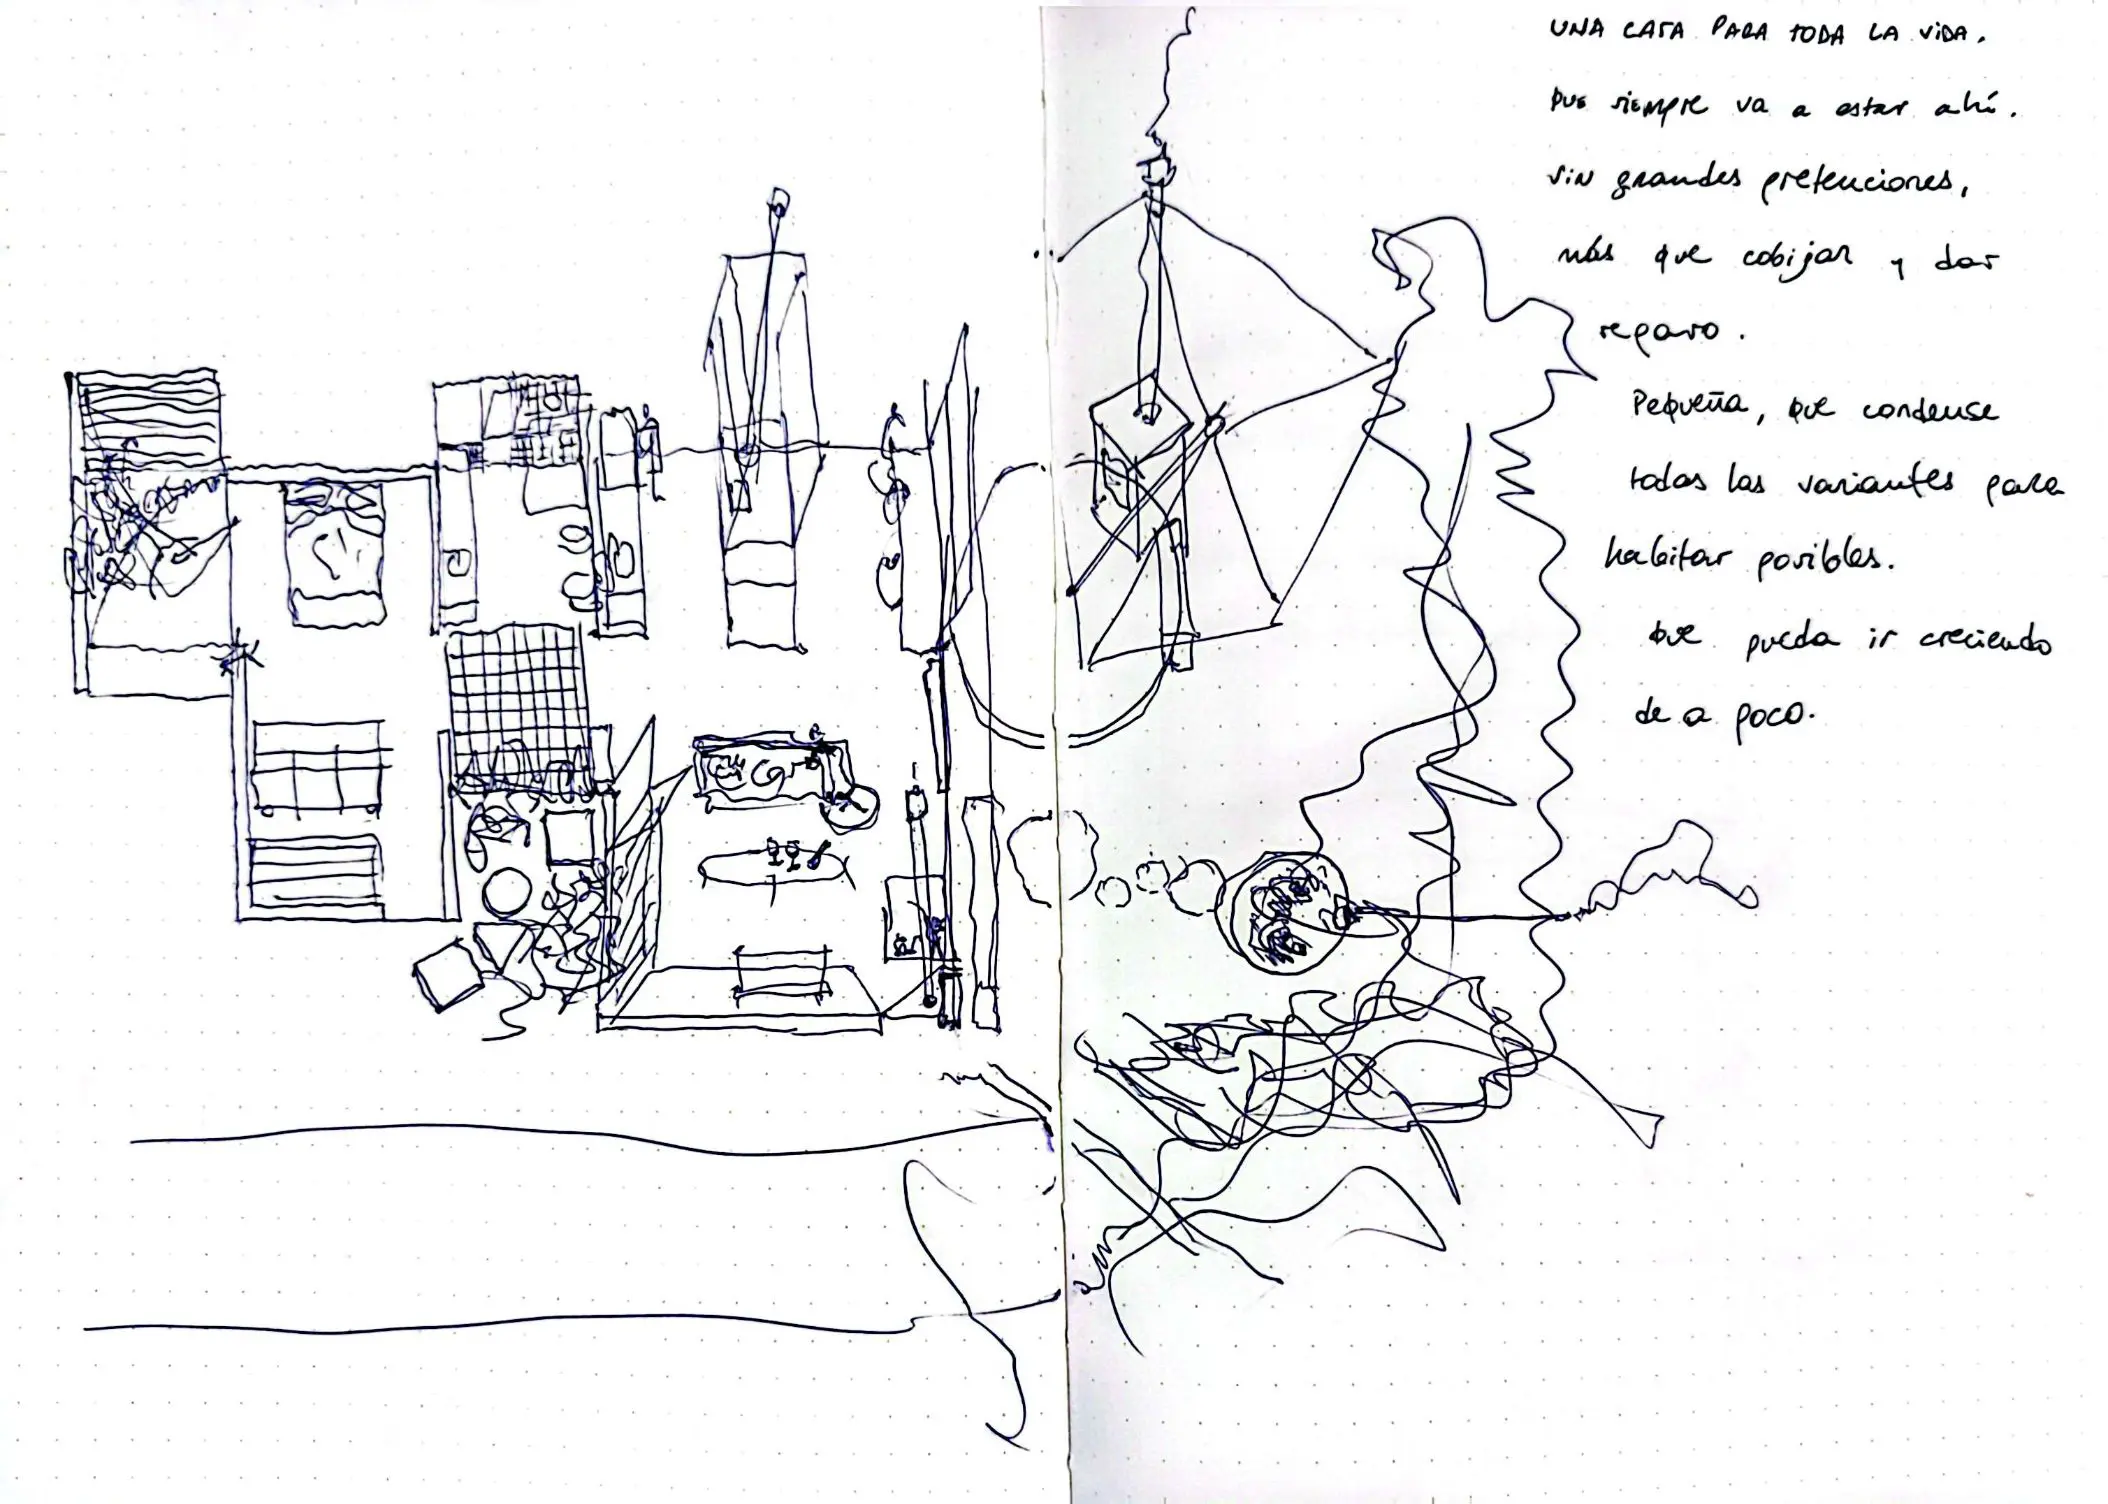 UNA CASA PARA TODA LA VIDA.
QUE siempre va a estar ahí.
sin grandes pretenciones,
más que cobijar y dar
reparo.
Pequeña, que condense
todas las variantes para
habitar posibles.
que pueda ir creciendo
de a poco.